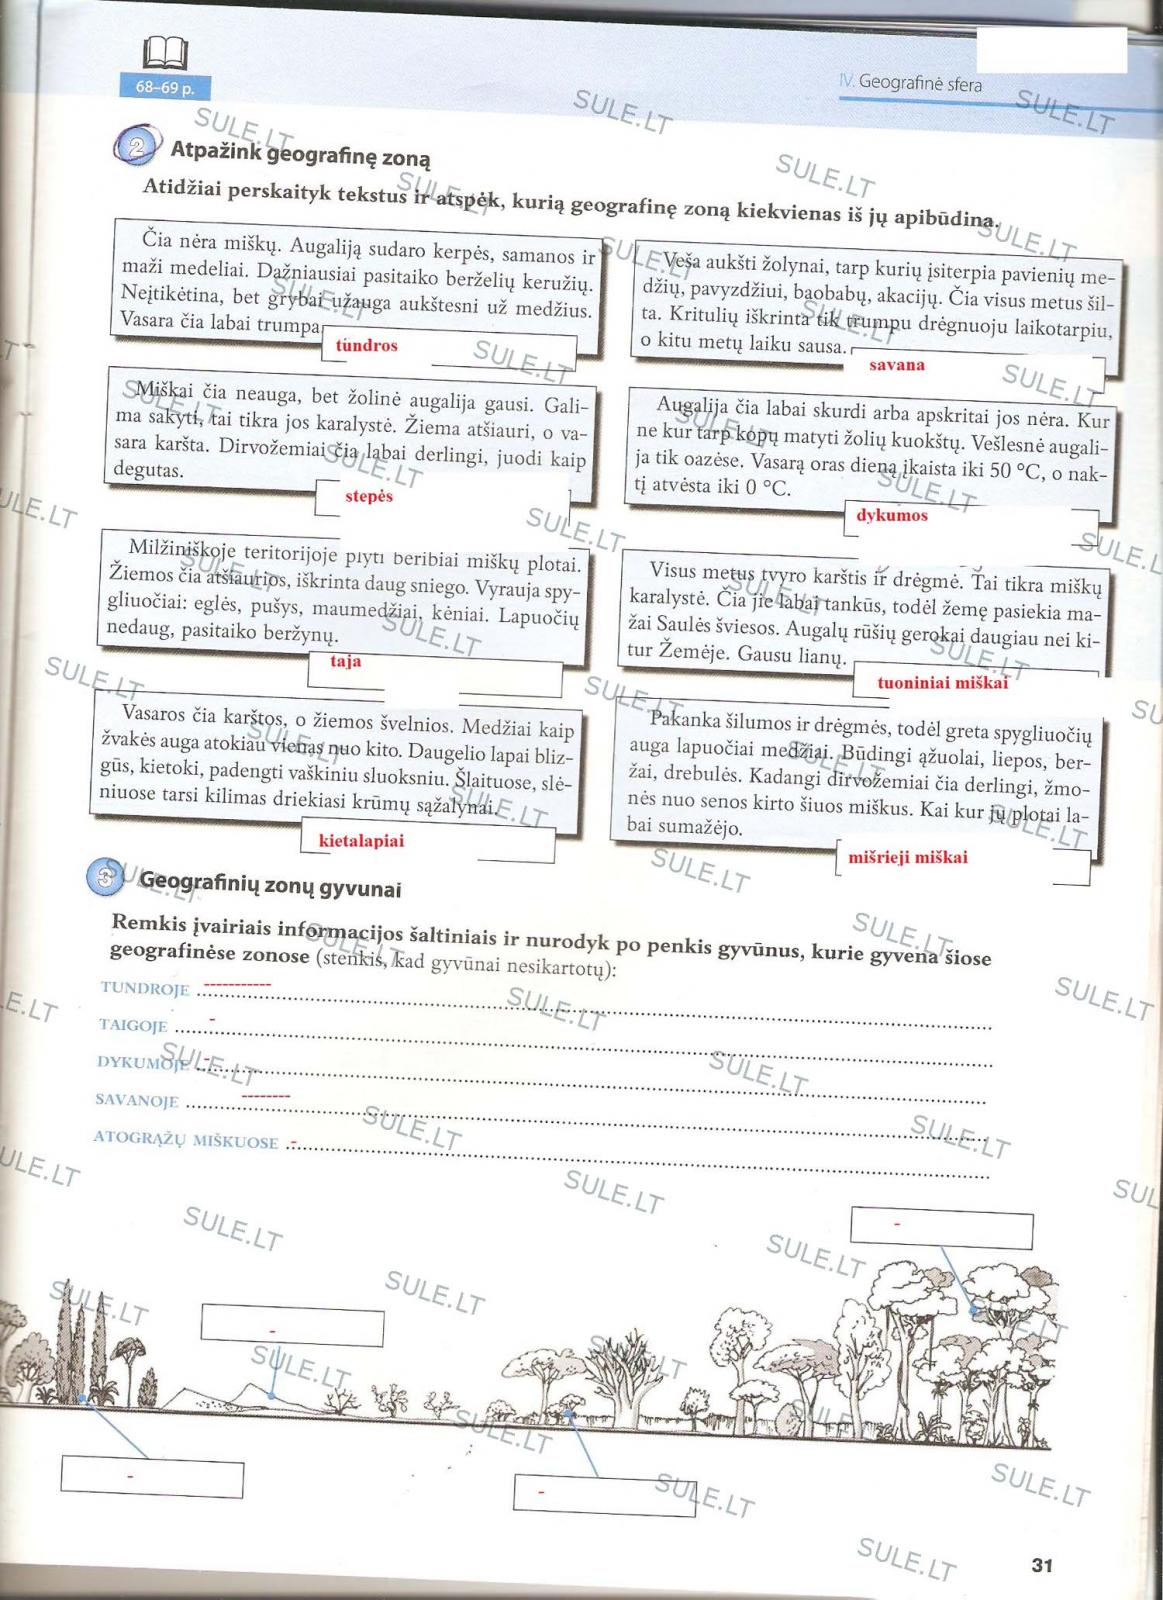 68–69 p.
IV. Geografinė sfera
2 Atpažink geografinę zoną
Atidžiai perskaityk tekstus ir atspėk, kurią geografinę zoną kiekvienas iš jų apibūdina.
Čia nėra miškų. Augaliją sudaro kerpės, samanos ir
maži medeliai. Dažniausiai pasitaiko berželių keružių.
Neįtikėtina, bet grybai užauga aukštesni už medžius.
Vasara čia labai trumpa
tundros
Veša aukšti žolynai, tarp kurių įsiterpia pavienių me-
džių, pavyzdžiui, baobabų, akacijų. Čia visus metus šil-
ta. Kritulių iškrinta tik trumpu drėgnuoju laikotarpiu,
o kitu metų laiku sausa.
savana
Miškai čia neauga, bet žolinė augalija gausi. Gali-
ma sakyti, tai tikra jos karalystė. Žiema atšiauri, o va-
sara karšta. Dirvožemiai čia labai derlingi, juodi kaip
degutas.
stepės
Augalija čia labai skurdi arba apskritai jos nėra. Kur
ne kur tarp kopų matyti žolių kuokštų. Vešlesnė augali-
ja tik oazėse. Vasarą oras dieną įkaista iki 50 °C, o nak-
tį atvėsta iki 0 °C.
dykumos
Milžiniškoje teritorijoje plyti beribiai miškų plotai.
Žiemos čia atšiaurios, iškrinta daug sniego. Vyrauja spy-
gliuočiai: eglės, pušys, maumedžiai, kėniai. Lapuočių
nedaug, pasitaiko beržynų.
taja
Visus metus tvyro karštis ir drėgmė. Tai tikra miškų
karalystė. Čia jie labai tankūs, todėl žemę pasiekia ma-
žai Saulės šviesos. Augalų rūšių gerokai daugiau nei ki-
tur Žemėje. Gausu lianų.
tuoniniai miškai
Vasaros čia karštos, o žiemos švelnios. Medžiai kaip
žvakės auga atokiau vienas nuo kito. Daugelio lapai bliz-
gūs, kietoki, padengti vaškiniu sluoksniu. Šlaituose, slė-
niuose tarsi kilimas driekiasi krūmų sąžalynai.
kietalapiai
Pakanka šilumos ir drėgmės, todėl greta spygliuočių
auga lapuočiai medžiai. Būdingi ąžuolai, liepos, ber-
žai, drebulės. Kadangi dirvožemiai čia derlingi, žmo-
nės nuo senos kirto šiuos miškus. Kai kur jų plotai la-
bai sumažėjo.
mišrieji miškai
3 Geografinių zonų gyvunai
Remkis įvairiais informacijos šaltiniais ir nurodyk po penkis gyvūnus, kurie gyvena šiose
geografinėse zonose (stenkis, kad gyvūnai nesikartotų):
TUNDROJE
TAIGOJE
DYKUMOJE
SAVANOJE
ATOGRĄŽŲ MIŠKUOSE
31
SULE.LT